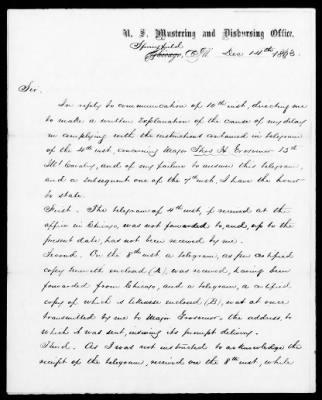 U. S. Mustering and Disbursing Office.
Springfield
Chicago, Ill. Dec 14th 1863.
Sir.
In reply to communication of 10th inst, directing me
to make a written explanation of the cause of my delay
in complying with the instructions contained in telegram
of the 4th inst, concerning Major Thos H. Grosvenor 13th
Ills Cavalry, and of my failure to answer this telegram,
and a subsequent one of the 7th inst, I have the honor
to state.
First. The telegram of 4th inst, if received at the
office in Chicago, was not forwarded to, and, up to the
present date, has not been received by me.
Second. On the 8th inst a telegram, as per certified
copy herewith enclosed (A), was received, having been
forwarded from Chicago, and a telegram, a certified
copy of which is likewise enclosed (B), was at once
transmitted by me to Major Grosvenor - the address, to
which it was sent, insuring its prompt delivery.
Third. As I was not instructed to acknowledge the
receipt of the telegram, received on the 8th inst, while